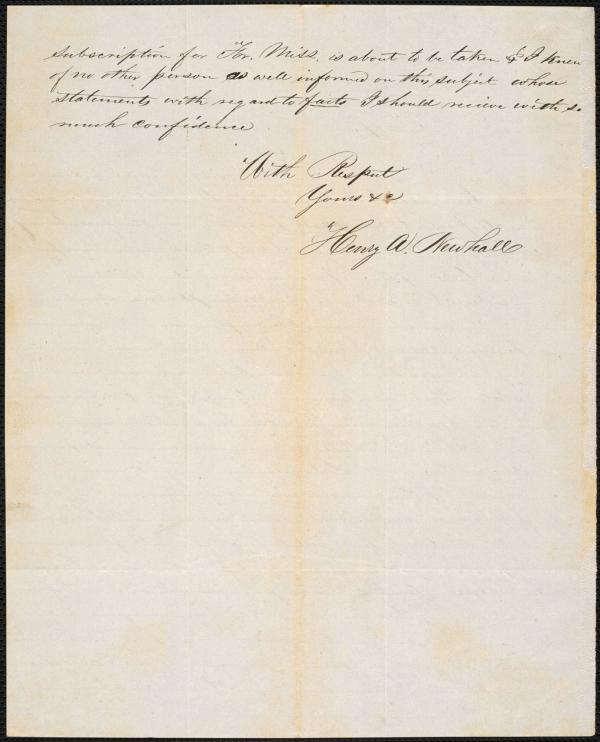 subscription for For. Miss. is about to be taken & I knew
of no other person as well informed on this subject whose
statements with regard to facts I should recieve with so
much confidence
With Respect
Yours &c
Henry A. Newhall